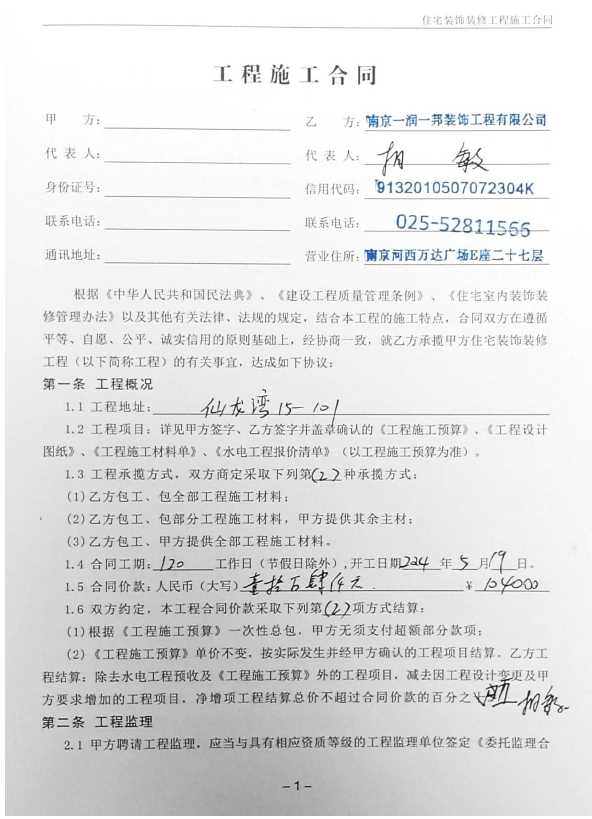 住宅装饰装修工程施工合同
工程施工合同
甲 方: 乙 方: 南京一润一邦装饰工程有限公司
代 表 人: 代 表 人: 胡 敏
身份证号: 信用代码: 9132010507072304K
联系电话: 联系电话: 025-52811566
通讯地址: 营业住所: 南京河西万达广场E座二十七层
根据《中华人民共和国民法典》、《建设工程质量管理条例》、《住宅室内装饰装
修管理办法》以及其他有关法律、法规的规定，结合本工程的施工特点，合同双方在遵循
平等、自愿、公平、诚实信用的原则基础上，经协商一致，就乙方承揽甲方住宅装饰装修
工程（以下简称工程）的有关事宜，达成如下协议：
第一条 工程概况
1.1 工程地址: 仙龙湾15-101
1.2 工程项目：详见甲方签字、乙方签字并盖章确认的《工程施工预算》、《工程设计
图纸》、《工程施工材料单》、《水电工程报价清单》（以工程施工预算为准）。
1.3 工程承揽方式，双方商定采取下列第(2)种承揽方式：
(1)乙方包工、包全部工程施工材料；
(2)乙方包工、包部分工程施工材料，甲方提供其余主材；
(3)乙方包工、甲方提供全部工程施工材料。
1.4 合同工期: 120 工作日（节假日除外）,开工日期224年 5 月19日。
1.5 合同价款: 人民币（大写）壹拾万肆仟元 ¥ 104000
1.6 双方约定，本工程合同价款采取下列第(2)项方式结算：
(1)根据《工程施工预算》一次性总包，甲方无须支付超额部分款项；
(2)《工程施工预算》单价不变，按实际发生并经甲方确认的工程项目结算。乙方工
程结算：除去水电工程预收及《工程施工预算》外的工程项目，减去因工程设计变更及甲
方要求增加的工程项目，净增项工程结算总价不超过合同价款的百分之
第二条 工程监理
2.1 甲方聘请工程监理，应当与具有相应资质等级的工程监理单位签定《委托监理合
－1－